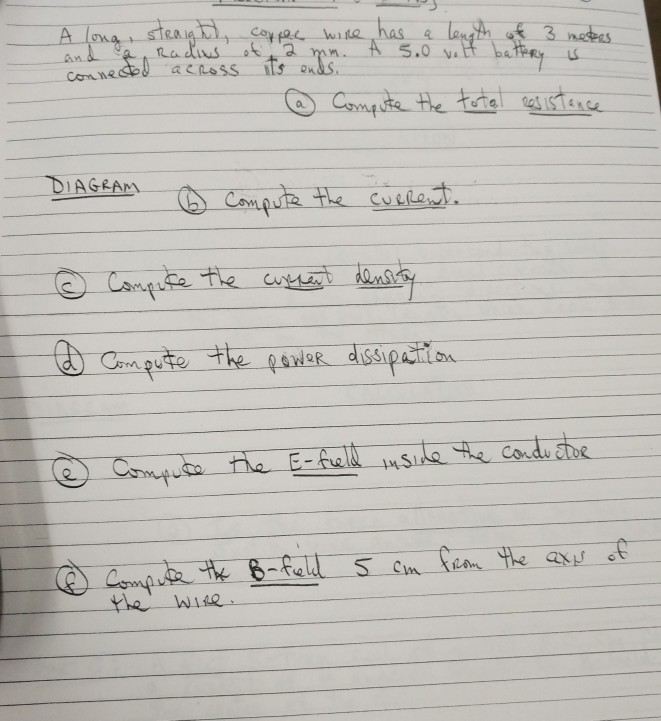 A long, straight, copper wire has a length of 3 meters
and a Radius of 2 mm. A 5.0 volt battery is
connected across its ends.
(a) Compute the total resistance
DIAGRAM
(b) Compute the current.
(c) Compute the current density
(d) Compute the power dissipation
(e) Compute the E-field inside the conductor
(f) Compute the B-field 5 cm from the axis of
the wire.